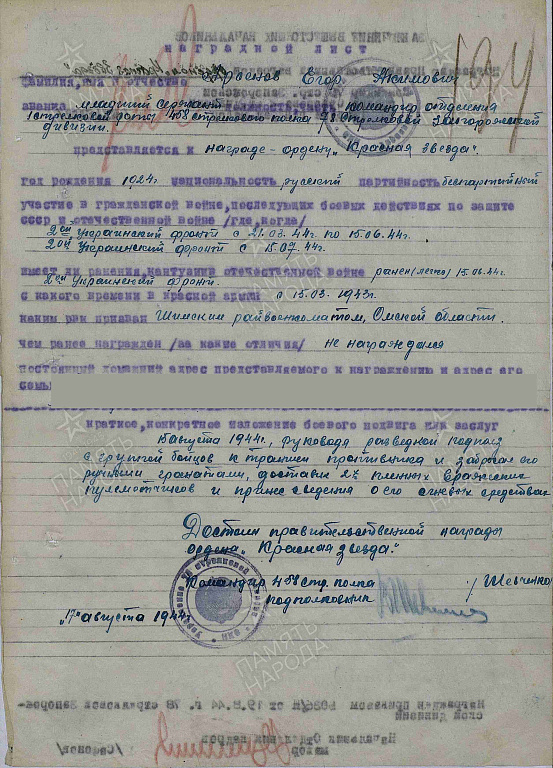 наградной лист
Фамилия, имя и отчество Егор Акимович
звание младший сержант должность, часть командир отделения
1 стрелковой роты 458 стрелкового полка 78 стрелковой Запорожской
дивизии.
представляется к награде - ордену „Красная звезда".
год рождения 1924г национальность русский партийность беспартийный
участие в гражданской войне, последующих боевых действиях по защите
СССР и отечественной войне /где, когда/
2ой Украинский фронт с 21.03.44г по 15.06.44г.
2ой Украинский фронт с 15.07.44г.
имеет ли ранения, контузии отечественной войне ранен (легко) 15.06.44г.
2ой Украинский фронт.
с какого времени в красной армии с 15.03.1943г.
каким рвк призван райвоенкоматом, Омской области.
чем ранее награжден /за какие отличия/ не награждался
постоянный домашний адрес представляемого к награждению и адрес его
семьи
краткое, конкретное изложение боевого подвига или заслуг
августа 1944г, руководя разведкой подполз
с группой бойцов к траншеи противника и забросал его
ручными гранатами, доставил 2х пленных вражеских
пулеметчиков и принес сведения о его огневых средствах
Достоин правительственной награды
ордена „Красная звезда."
Командир 458 стр. полка
подполковник /Шевченко
"17" августа 1944г
ПАМЯТЬ
НАРОДА
Награжден приказом №036/н от 19.8.44 г. 78 стрелковой Запорож-
ской дивизии
Начальник Отделения кадров
майор /Сафонов/